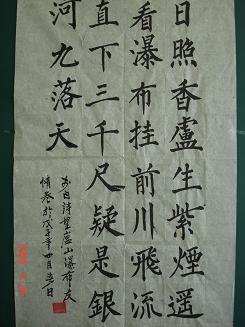 日照香盧生紫煙遥
看瀑布挂前川飛流
直下三千尺疑是銀
河九落天
李白诗望廬山瀑布
於戊子年四月吉日